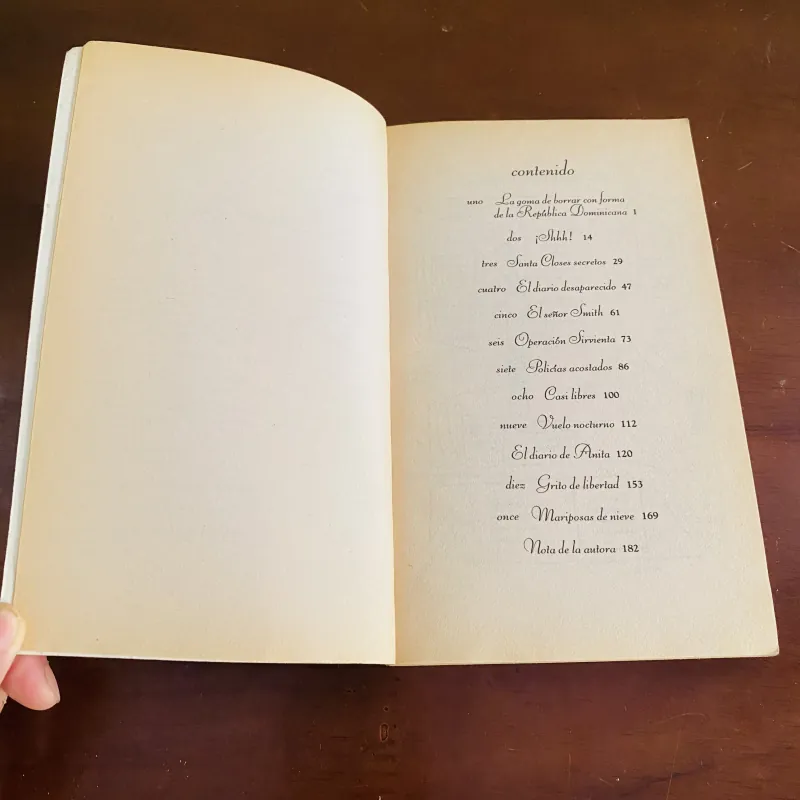 contenido
uno La goma de borrar con forma
de la República Dominicana 1
dos ¡Shhh! 14
tres Santa Closes secretos 29
cuatro El diario desaparecido 47
cinco El señor Smith 61
seis Operación Sirvienta 73
siete Policías acostados 86
ocho Casi libres 100
nueve Vuelo nocturno 112
El diario de Anita 120
diez Grito de libertad 153
once Mariposas de nieve 169
Nota de la autora 182